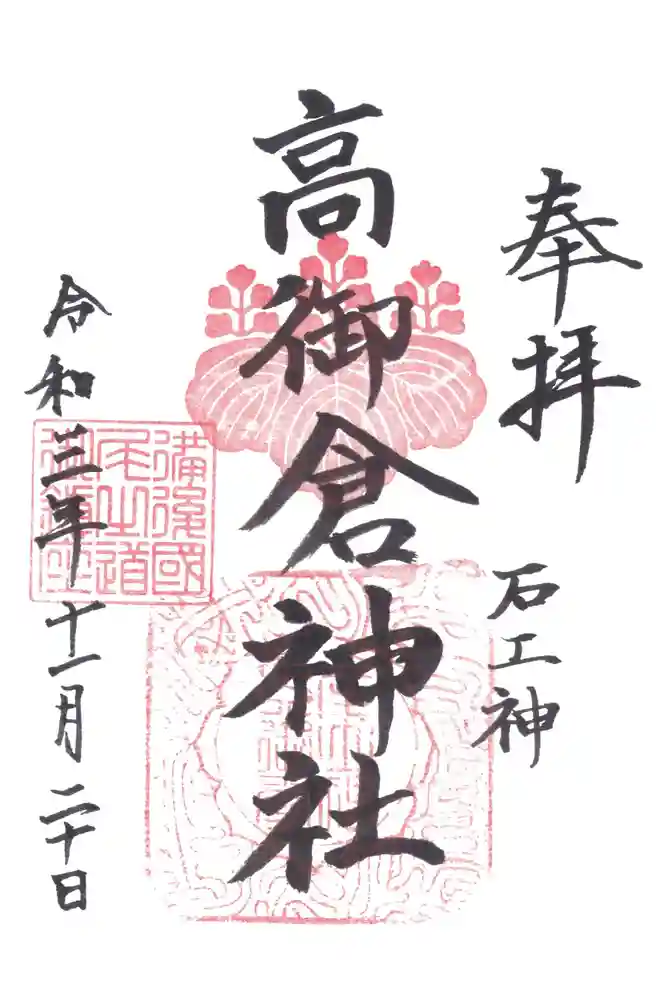 奉拝
石工神
高御倉神社
備後國
尾之道
御鎮座
令和三年十一月二十日